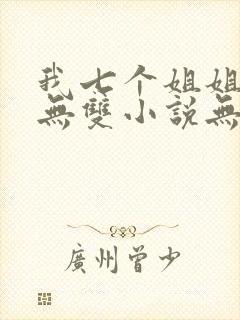 我七个姐姐
無雙小説無
廣州曾少